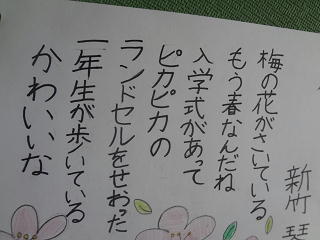 梅の花がさいている
もう春なんだね
入学式があって
ピカピカの
ランドセルをせおった
一年生が歩いている
かわいいな
新竹 琴